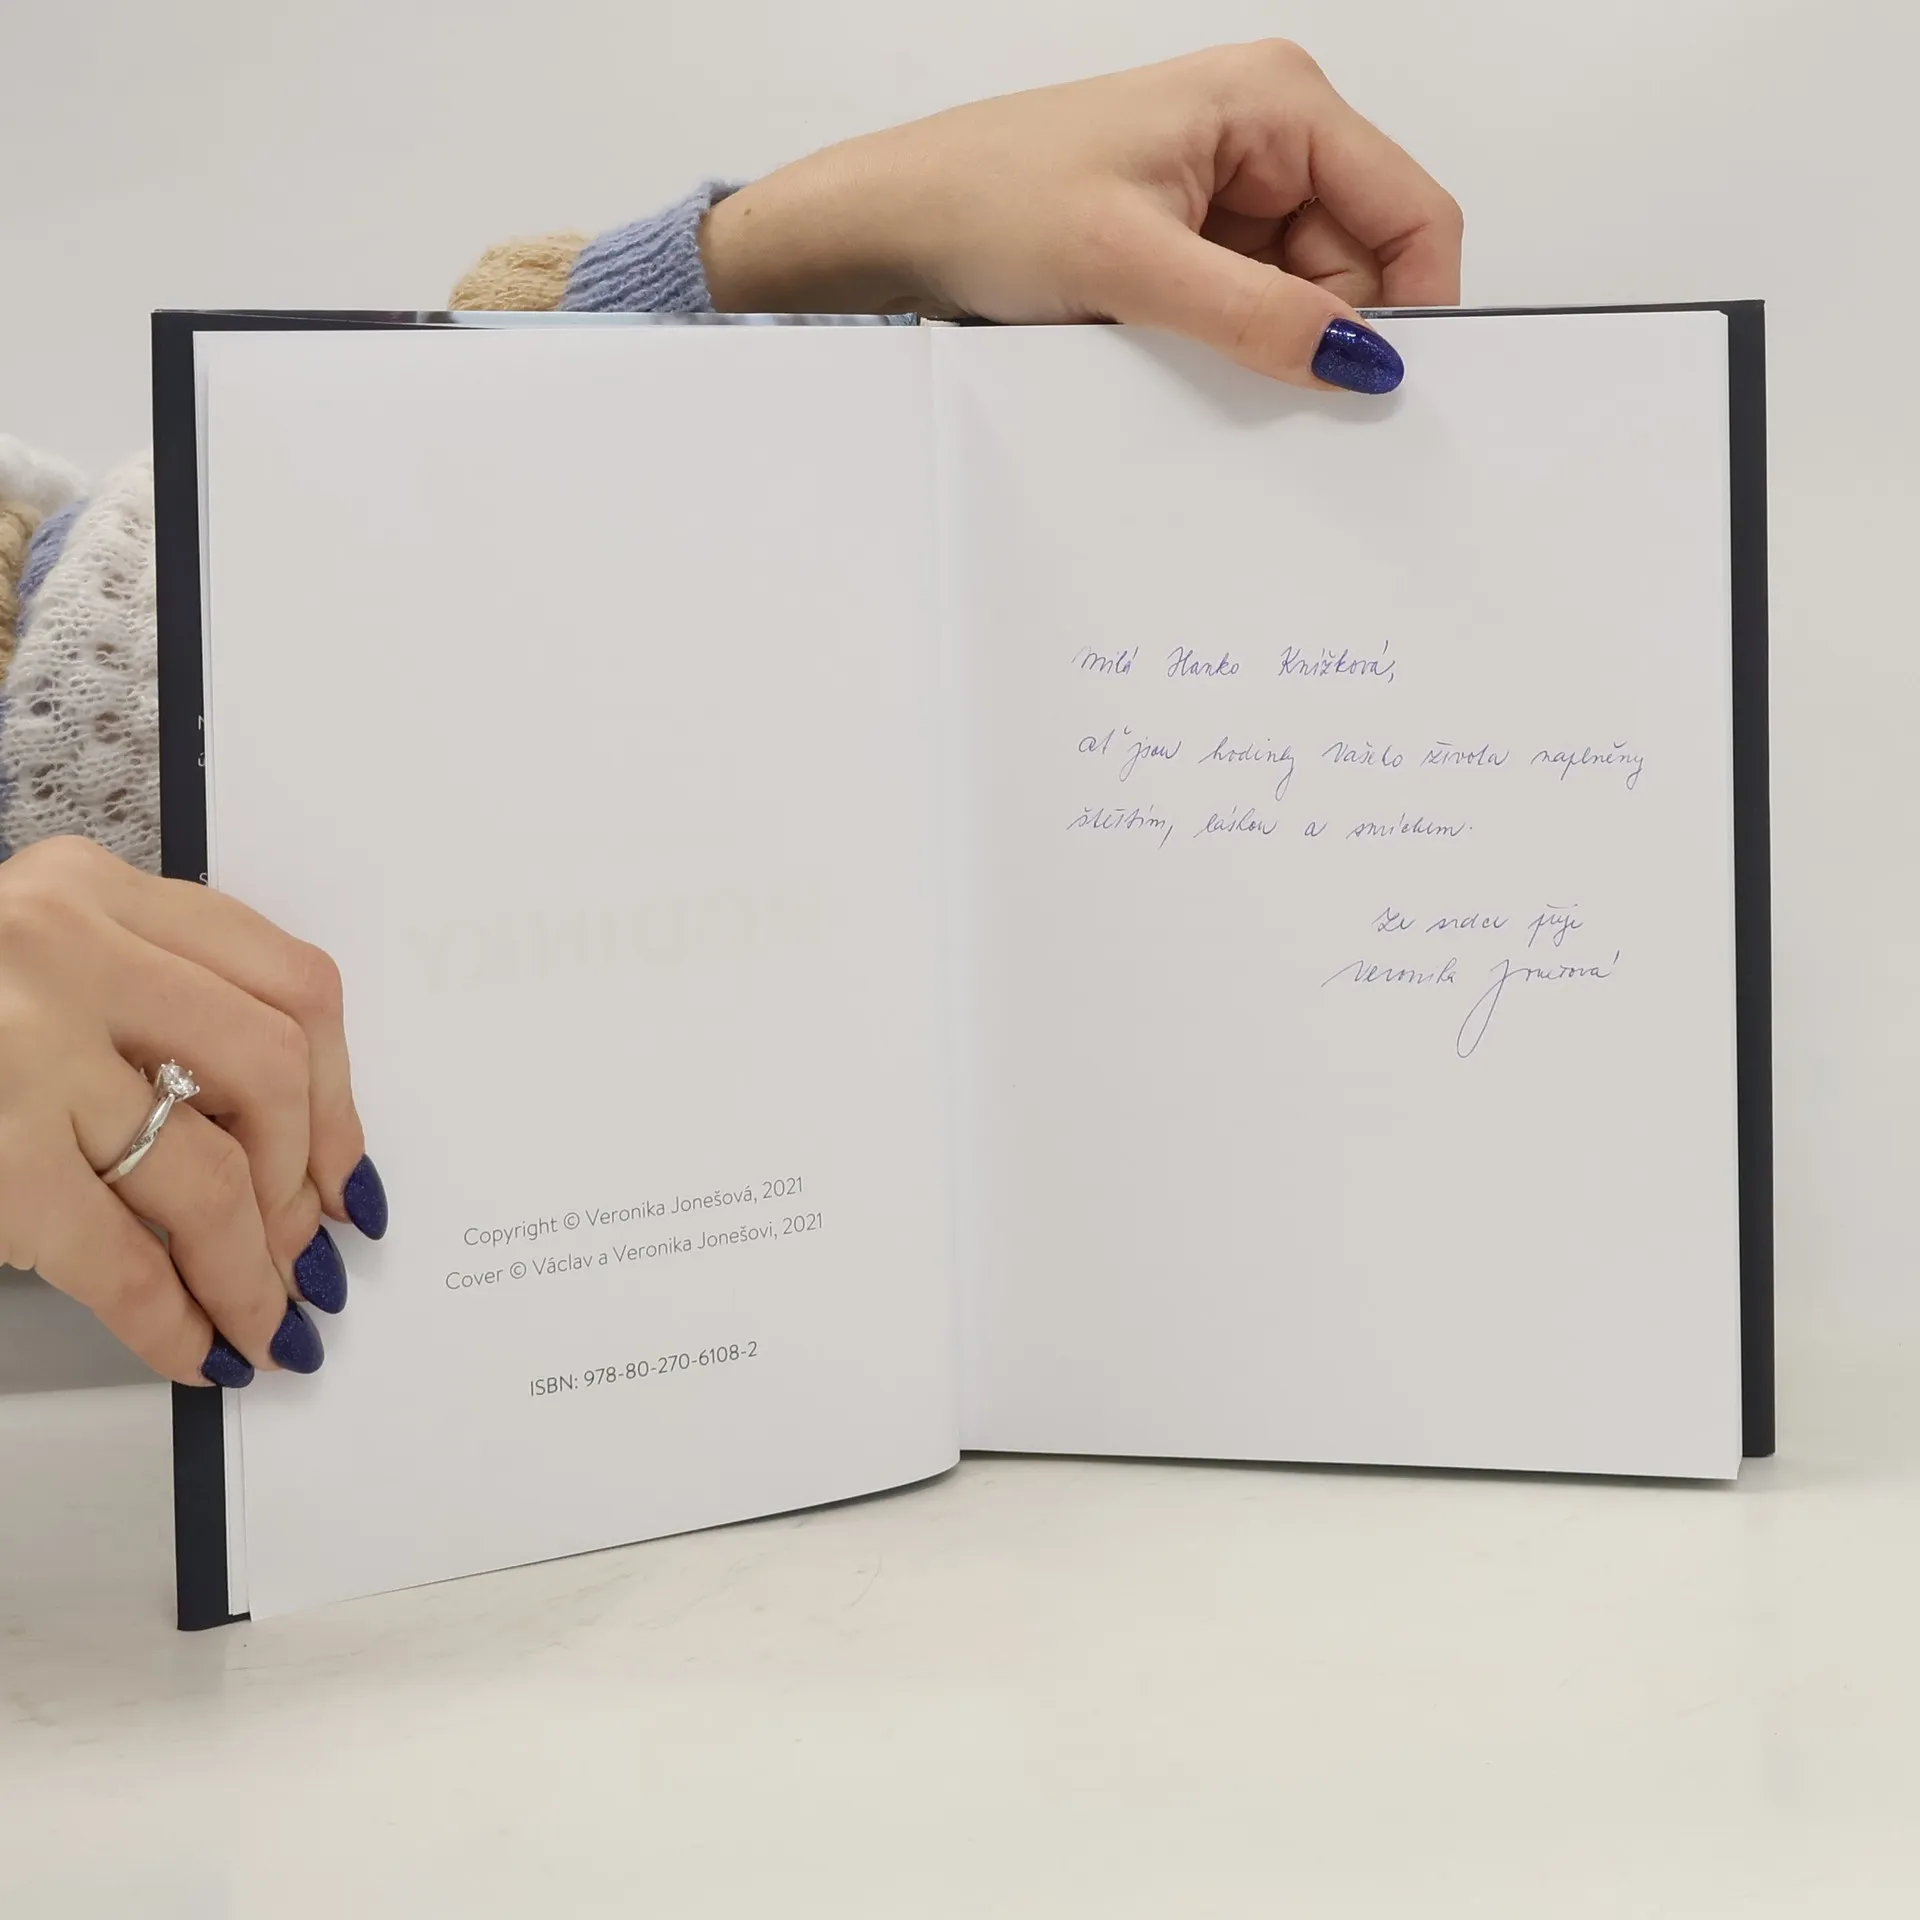 Copyright © Veronika Jonešová, 2021
Cover © Václav a Veronika Jonešovi, 2021
ISBN: 978-80-270-6108-2
Milá Hanko Knížková,
ať jsou hodinky Vašeho života naplněny
štěstím, láskou a smíchem.
Ze srdce přeje
Veronika Jonešová